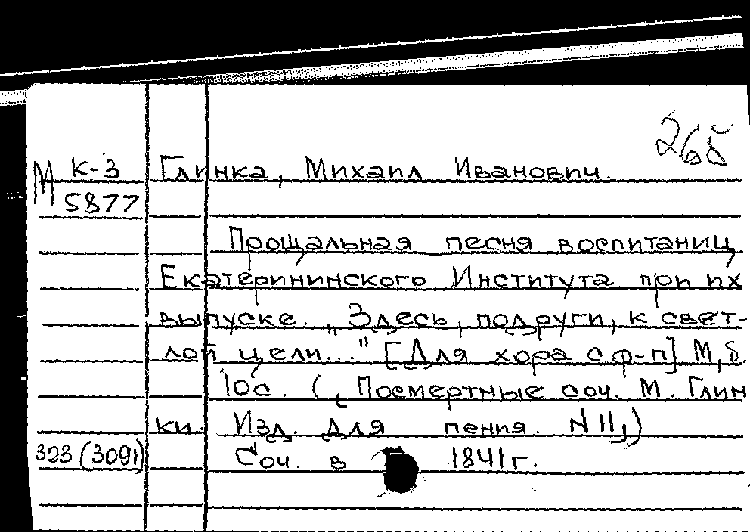 265
М К-3 Глинка, Михаил Иванович.
5877
Прощальная песня воспитаниц
Екатерининского Института при их
выпуске. „Здесь, подруги, к свет-
лой цели..." [Для хора с ф-п] М, б.
10с. („Посмертные соч. М. Глин
ки. Изд. для пения. N 11„)
323 (3091) Соч. в 1841 г.